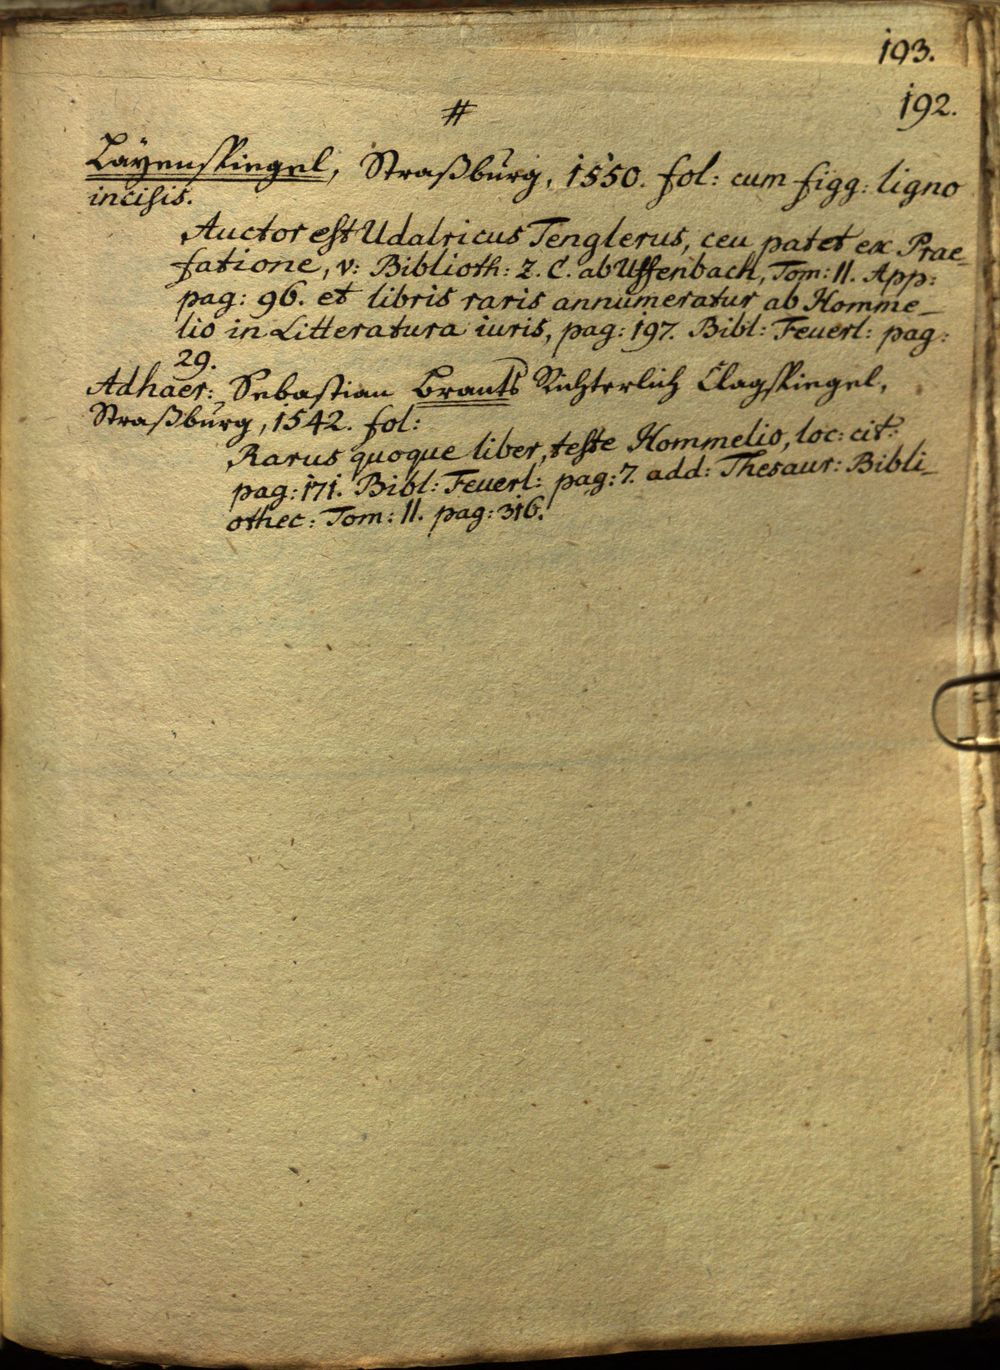 193.
192.
#
Layenspiegel, Straßburg, 1550. fol: cum figg: ligno
incisis.
Auctor est Udalricus Tenglerus, ceu patet ex Prae-
fatione, v: Biblioth: Z. C. ab Uffenbach, Tom: II. App:
pag: 96. et libris raris annumeratur ab Homme-
lio in Litteratura iuris, pag: 197. Bibl: Feuerl: pag:
29.
Adhaer: Sebastian Brants Richterlich Clagspiegel,
Straßburg, 1542. fol:
Rarus quoque liber, teste Hommelio, loc: cit:
pag: 171. Bibl: Feuerl: pag: 7. add: Thesaur: Bibli-
othec: Tom: II. pag: 316.